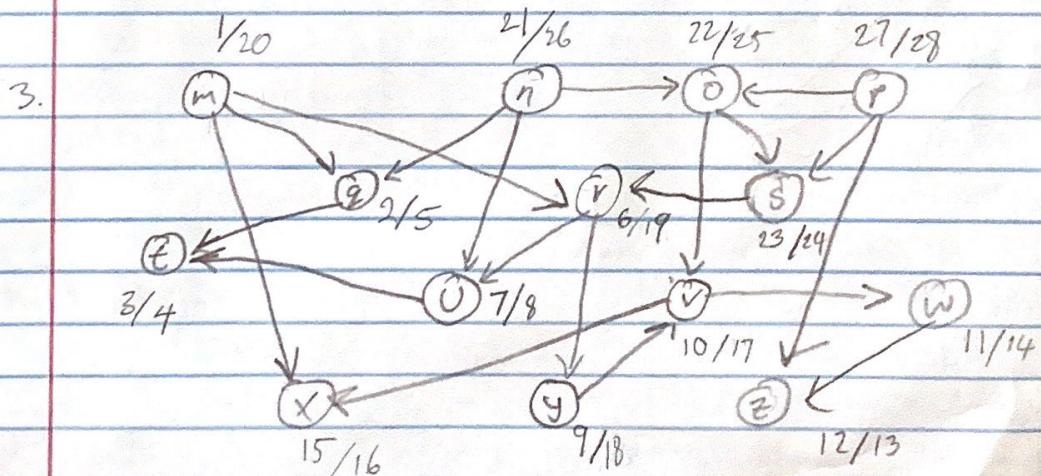 1/20 21/26 22/25 27/28
3. m n o p
q 2/5 r 6/19 s 23/24
t 3/4 U 7/8 v 10/17 w 11/14
x 15/16 y 9/18 z 12/13